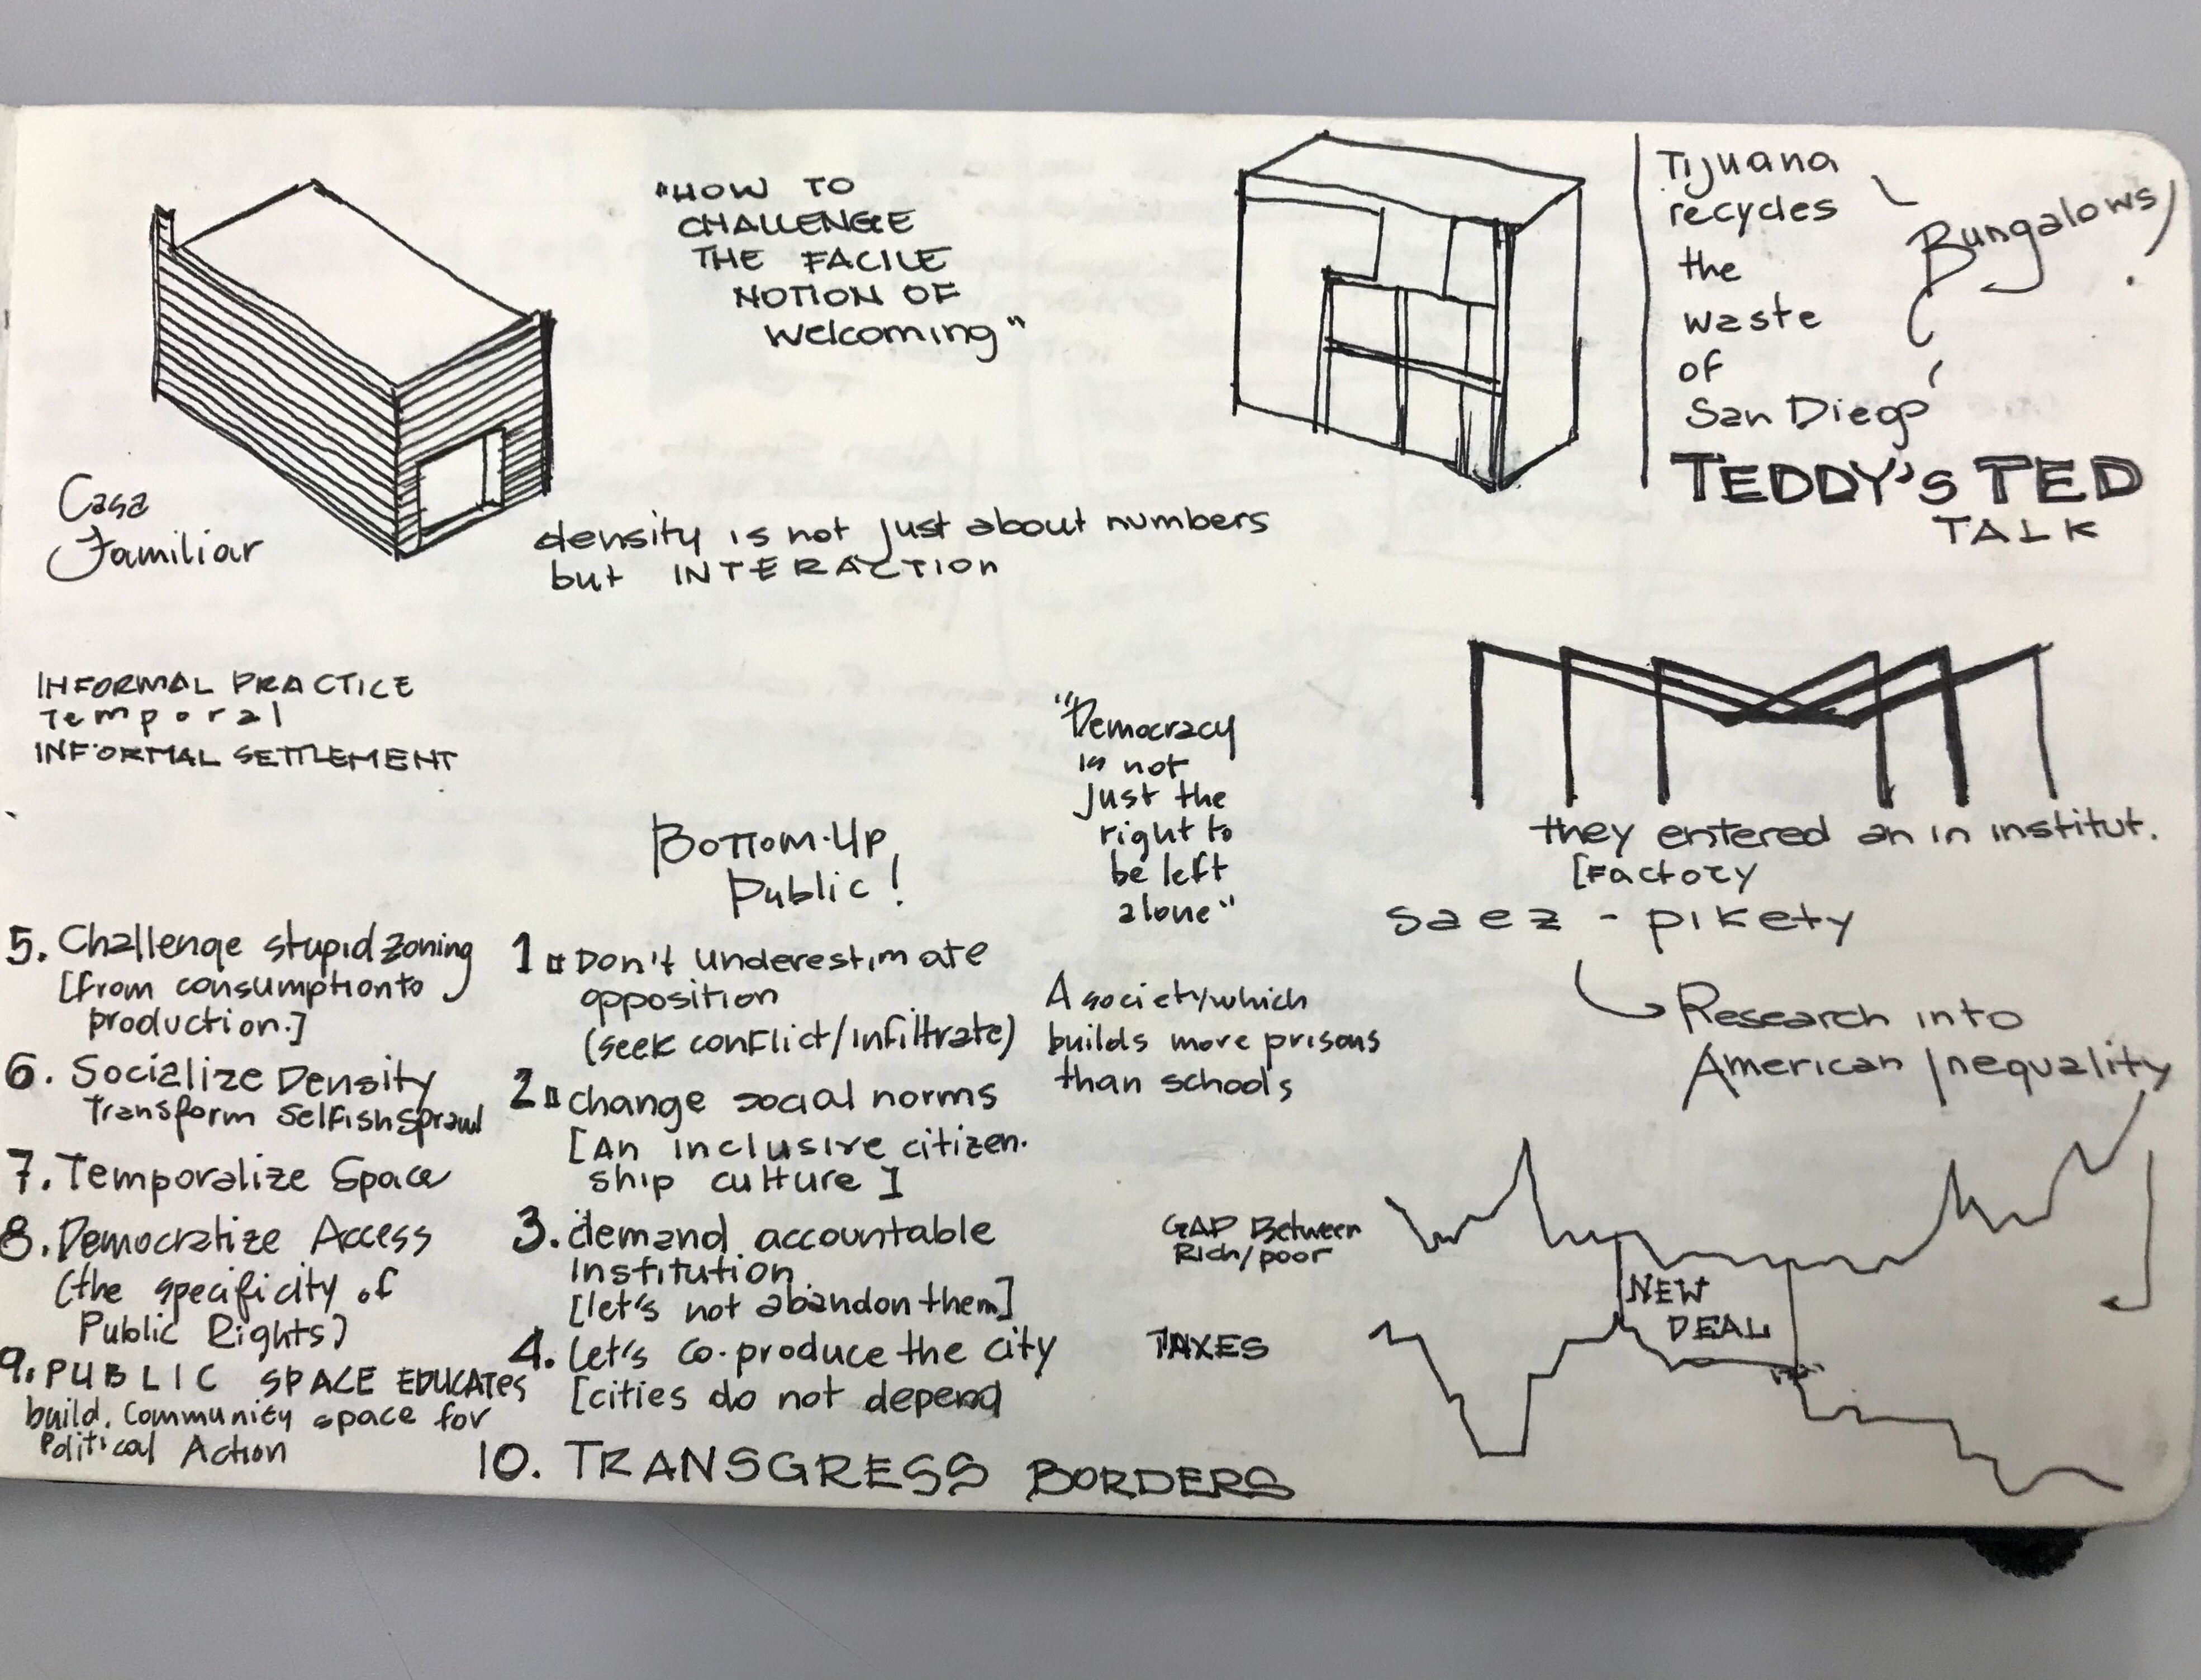 "HOW TO
CHALLENGE
THE FACILE
NOTION OF
Welcoming"
Tijuana
recycles
the
waste
of
San Diego
Bungalows!
TEDDY'S TED
TALK
Casa
Familiar
density is not just about numbers
but INTERACTION
INFORMAL PRACTICE
Temporal
INFORMAL SETTLEMENT
"Democracy
is not
just the
right to
be left
alone"
they entered an in institut.
[Factory
saez - pikety
Research into
American Inequality
Bottom-Up
Public!
1. Don't underestimate
opposition
(seek conflict/infiltrate)
2. change social norms
[An inclusive citizen.
ship culture]
3. demand accountable
Institution
[let's not abandon them]
4. let's co-produce the city
[cities do not depend
5. Challenge stupid zoning
[from consumption to
production.]
6. Socialize Density
Transform selfish sprawl
7. Temporalize Space
8. Democratize Access
(the specificity of
Public Rights)
9. PUBLIC SPACE EDUCATES
build. Community space for
Political Action
10. TRANSGRESS BORDERS
A society which
builds more prisons
than schools
GAP Between
Rich/poor
NEW
DEAL
TAXES